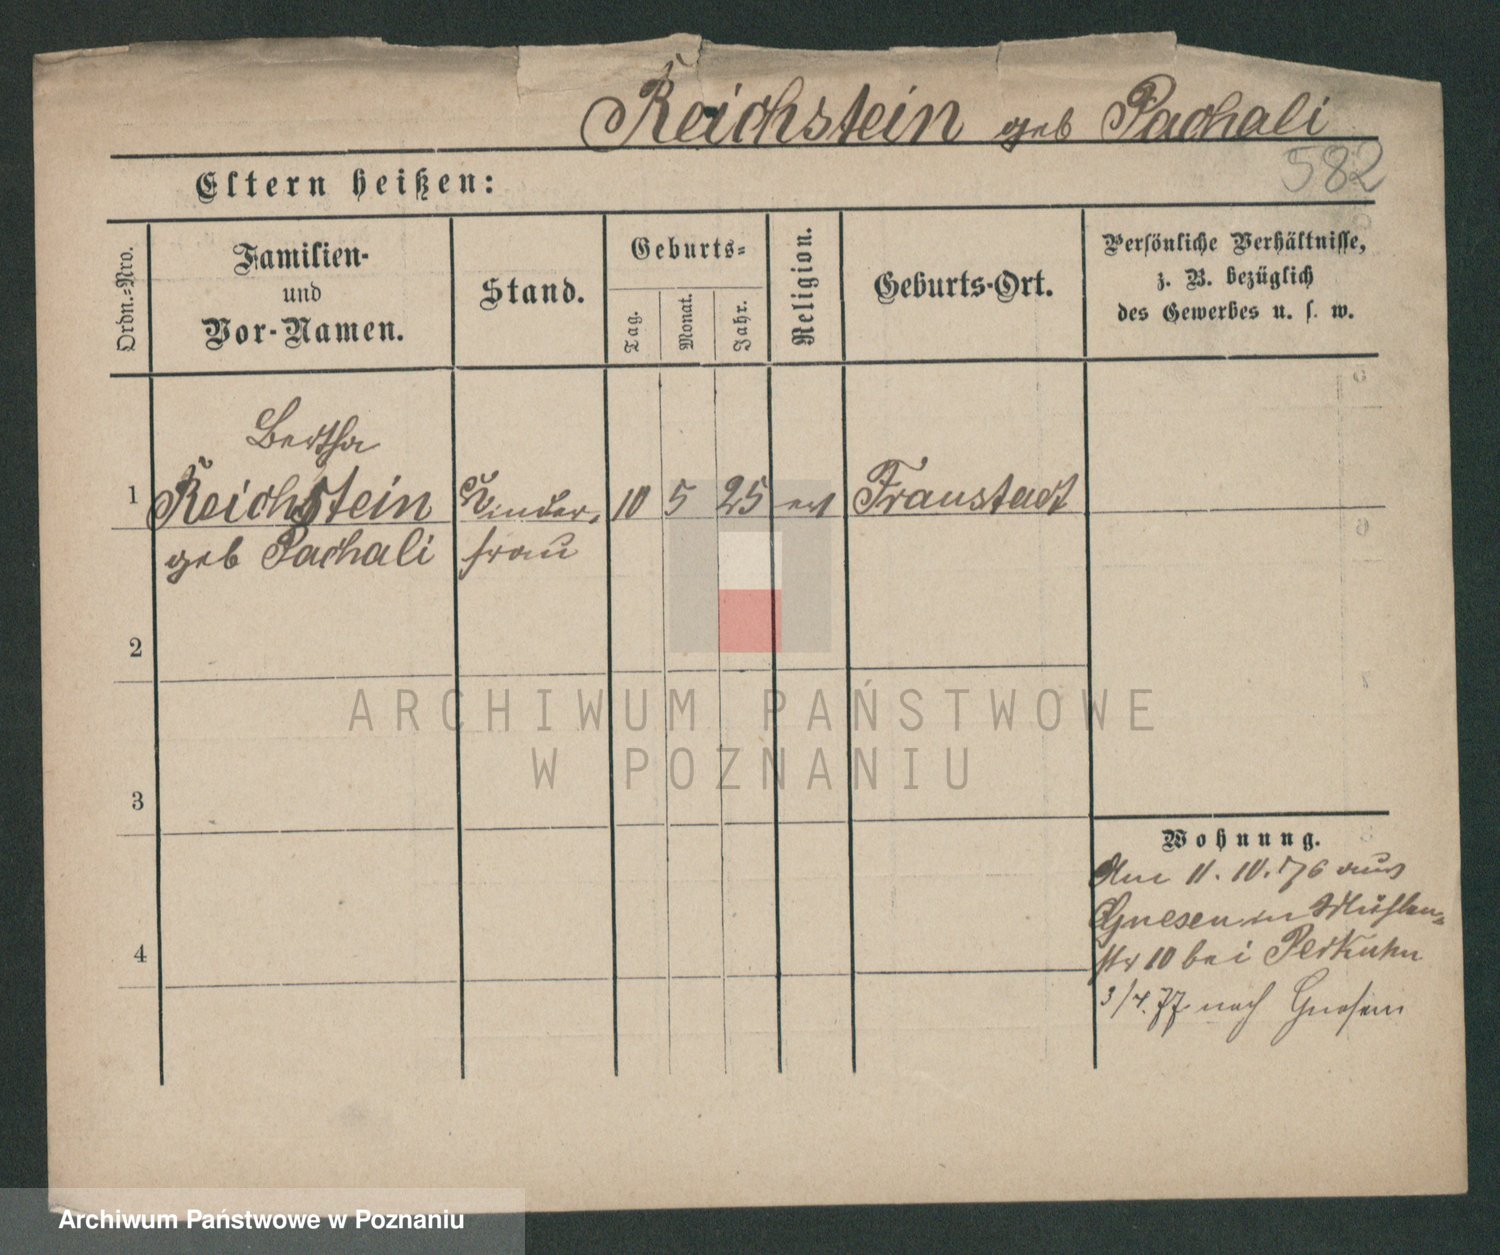 Reichstein geb Pachali
582
Eltern heißen:
Ordn.-Nro.
Familien-
und
Vor-Namen.
Stand.
Geburts-
Tag.
Monat.
Jahr.
Religion.
Geburts-Ort.
Persönliche Verhältnisse,
z. B. bezüglich
des Gewerbes u. s. w.
Bertha
1 Reichstein Kinder- 10 5 25 ev Fraustadt
geb Pachali frau
2
3
4
Wohnung.
Am 11.10.76 aus
Gnesen in Mühlen-
str 10 bei Perkuhn
3/4.77 nach Gnesen
ARCHIWUM PAŃSTWOWE
W POZNANIU
Archiwum Państwowe w Poznaniu